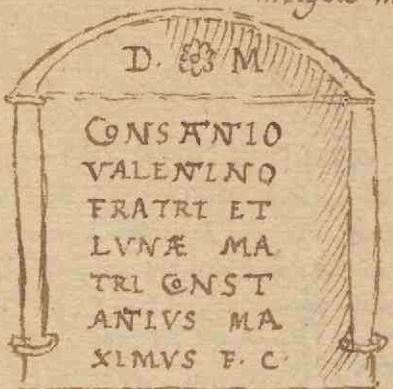 D. M
CONSANTIO
VALENTINO
FRATRI ET
LVNÆ MA
TRI CONST
ANTIVS MA
XIMVS F. C